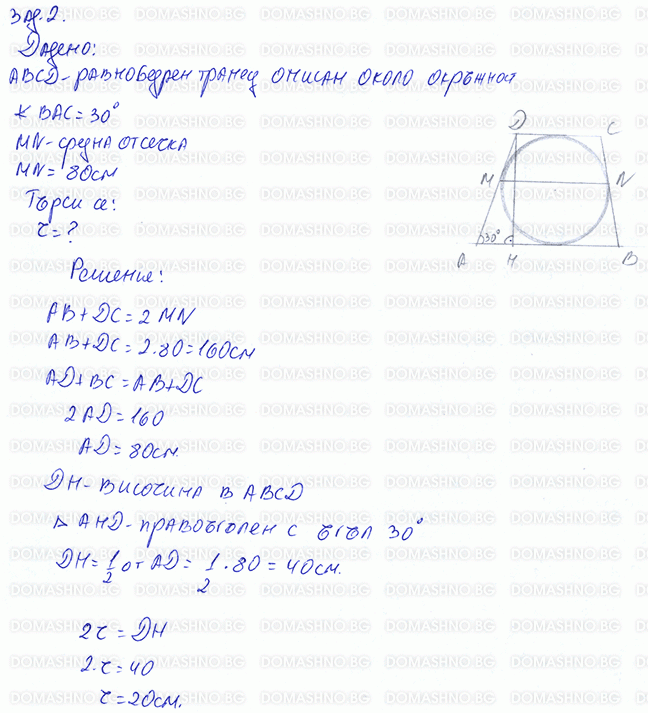 Зад. 2.
Дадено:
ABCD - равнобедрен трапец описан около окръжност
∢ BAC = 30°
MN - средна отсечка
MN = 80 см
Търси се:
r = ?
D C
M N
30°
A H B
Решение:
AB + DC = 2 MN
AB + DC = 2.80 = 160 см
AD + BC = AB + DC
2AD = 160
AD = 80 см.
DH - височина в ABCD
△ AHD - правоъгълен с ъгъл 30°
DH = 1/2 от AD = 1/2 . 80 = 40 см.
2r = DH
2.r = 40
r = 20 см.
DOMASHNO.BG